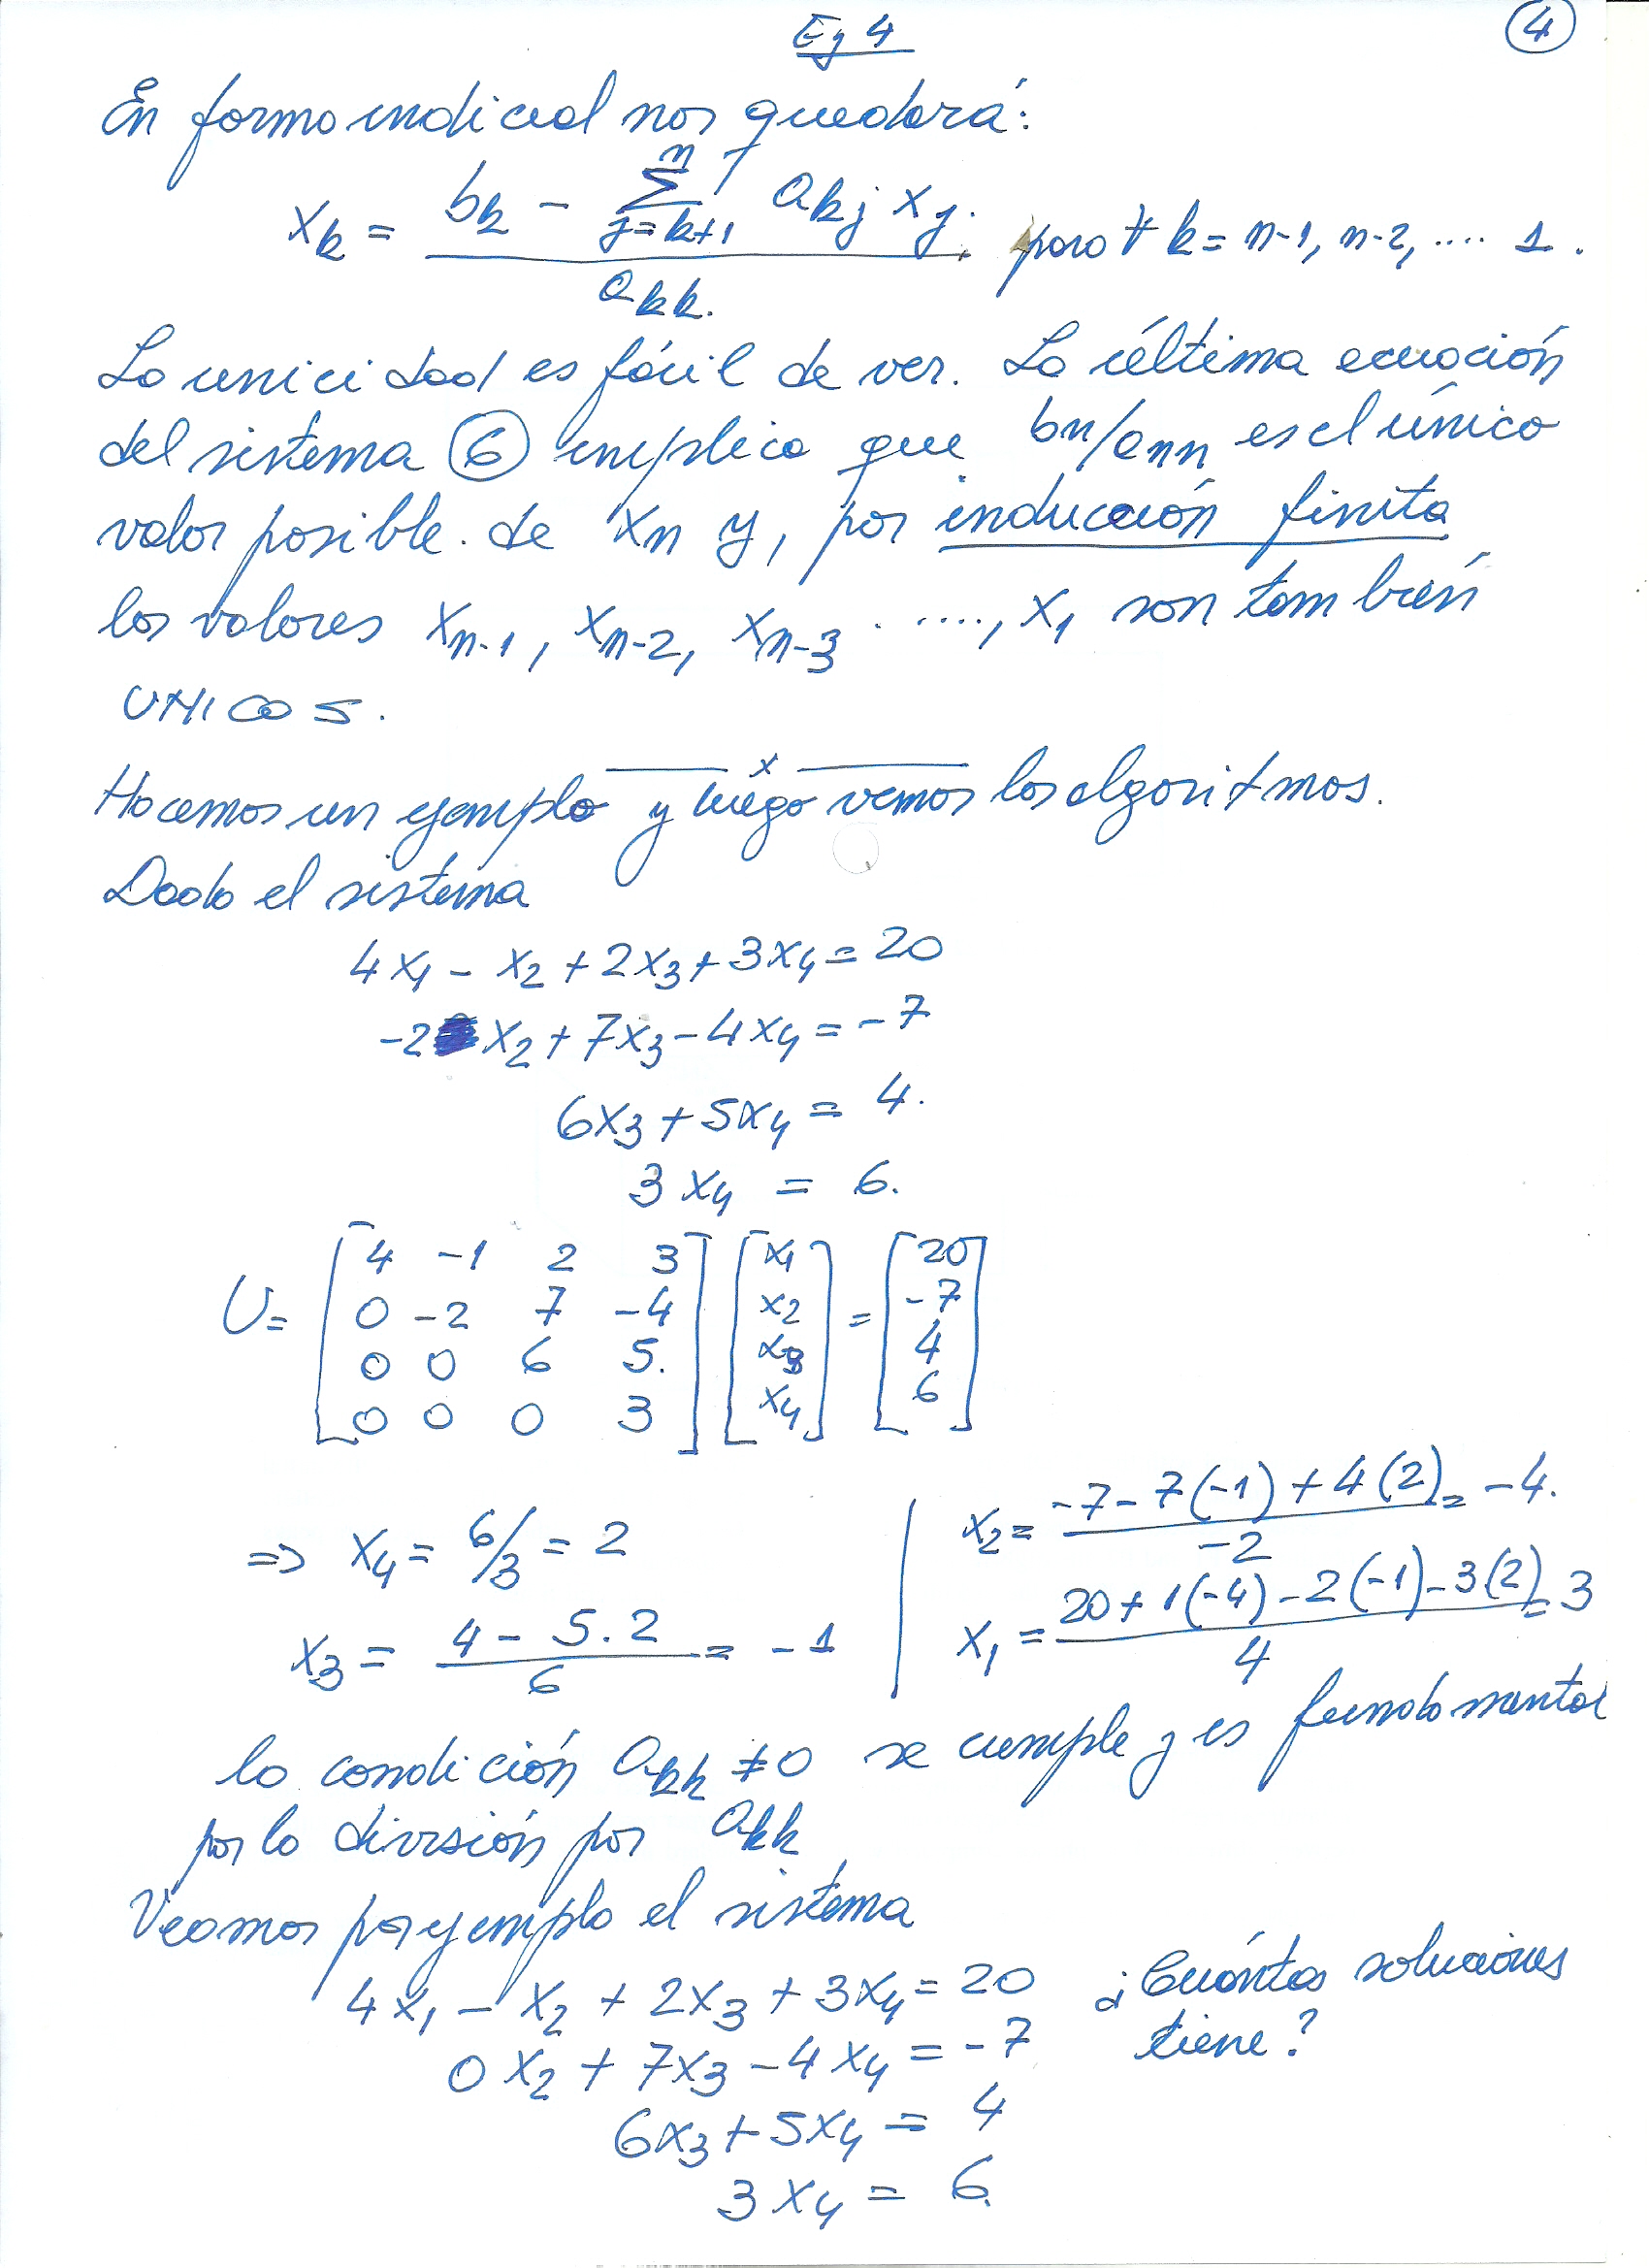 Ej 4
4
En forma indicial nos quedará:
x_k = (b_k - Σ_{j=k+1}^{n} a_kj x_j) / a_kk. para ∀ k = n-1, n-2, .... 1.
La unicidad es fácil de ver. La última ecuación
del sistema ⑥ implica que bn/ann es el único
valor posible. de xn y, por inducción finita
los valores x_{n-1}, x_{n-2}, x_{n-3} ....., x_1 son también
UNICOS.
x
Hacemos un ejemplo y luego vemos los algoritmos.
Dado el sistema
4x1 - x2 + 2x3 + 3x4 = 20
-2 x2 + 7x3 - 4x4 = -7
6x3 + 5x4 = 4.
3x4 = 6.
U = [4 -1 2 3] [x1] = [20]
[0 -2 7 -4] [x2] [-7]
[0 0 6 5.] [x3] [4]
[0 0 0 3] [x4] [6]
=> x4 = 6/3 = 2
x3 = (4 - 5.2)/6 = -1
x2 = (-7 - 7(-1) + 4(2))/-2 = -4.
x1 = (20 + 1(-4) - 2(-1) - 3(2))/4 = 3
la condición a_kk ≠ 0 se cumple y es fundamental
por la división por a_kk
Veamos por ejemplo el sistema
4x1 - x2 + 2x3 + 3x4 = 20 ¿Cuántas soluciones
0x2 + 7x3 - 4x4 = -7 tiene?
6x3 + 5x4 = 4
3x4 = 6.